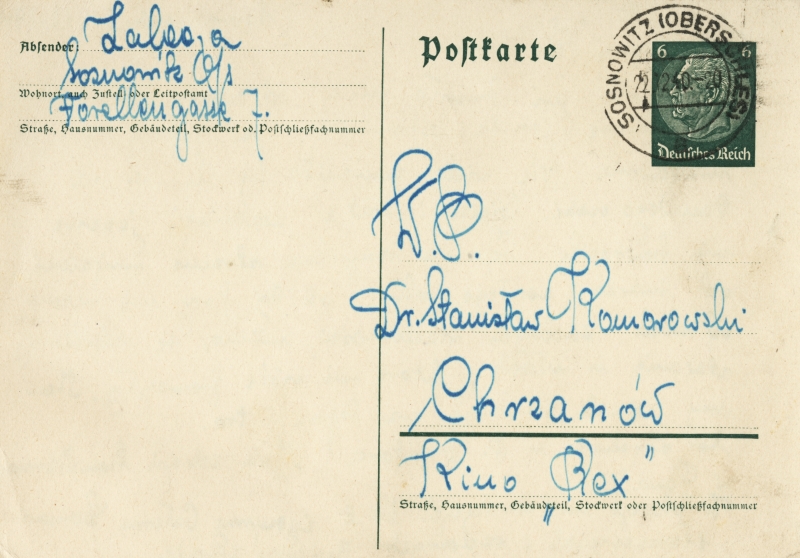 Absender:
Sosnowitz O/s
Wohnort, auch Zustell- oder Leitpostamt
Forellengasse 7.
Straße, Hausnummer, Gebäudeteil, Stockwerk od. Postschließfachnummer
Postkarte
SOSNOWITZ (OBERSCHLES)
22.12.40.-20
6 6
Deutsches Reich
W.P.
Dr. Stanisław Komorowski
Chrzanów
Kino „Rex"
Straße, Hausnummer, Gebäudeteil, Stockwerk oder Postschließfachnummer